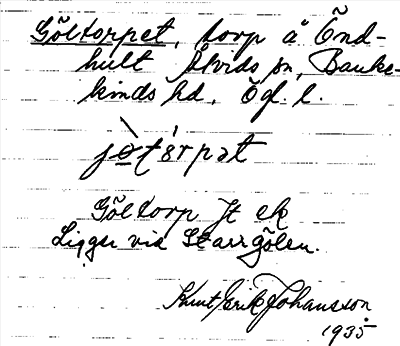 Göltorpet, torp å Önd-
hult Åtvids sn, Banke-
kinds hd. Ögl. l.
jø̀t́ərpət
Göltorp Jt ek
Ligger vid Starrgölen.
Knut Erik Johansson
1935